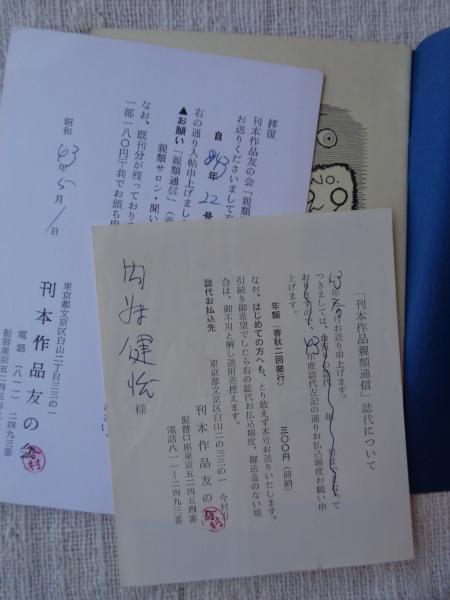 「刊本作品親類通信」誌代について
43年春号お送り申上げます。
つきましては、
43年度誌代左記の通りお払込賜度お願い申
上げます。
年額(春秋二回発行) 三〇〇円(前納)
なお、はじめての方へも、とり敢えず本号お送りいたします。
引続き御希望でしたら右の誌代お払込賜度、御送金のない場
合は、御不用と解し送附差控えます。
誌代お払込先
東京都文京区白山二の三三の一 今村方
刊本作品友の会
振替口座東京五二四五四番
電話八一一‐二四九三番
様
拝復
刊本作品友の会「親類
お送りくださいまして
自 843 22号
右の通り入帖申上げまし
▲お願い「親類通信」(春
親類サロン・聞い
なお、既刊分が残っており
一部一八〇円〒共でお頒ち
昭和 43年5月1日
東京都文京区白山二丁目三三の一
刊本作品友の会
電話(八一一)二四九三番
振替東京五二四五四
NO.
29